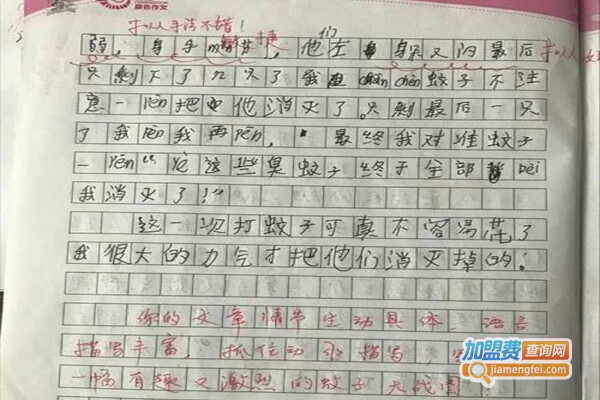 原色作文
拟人手法不错！
弱，身手敏捷，他们在身朵又闪最后
拟人
只剩下了几只了我趁chén蚊子不注
意一rēn把他消灭了。只剩最后一只
了我rēn我再rēn，最终我对准蚊子
一rēn“这些臭蚊子终于全部bèi
我消灭了！”
这一次打蚊子可真不容易花了
我很大的力气才把他们消灭掉的：
你的文章情节生动具体，语言
描写丰富，抓住动永描写
一幅有趣又激烈的蚊子大战图！
加盟费查询网
jiamengfei.com